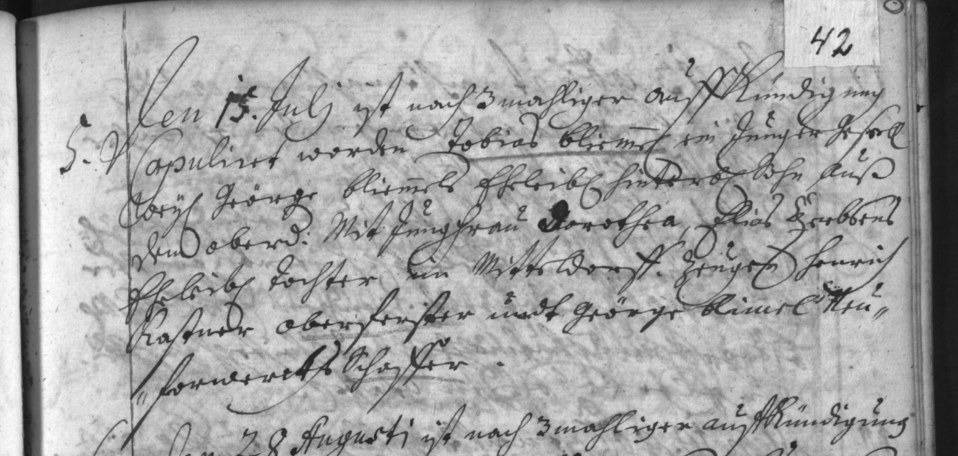 42
Den 15. Julj ist nach 3 mahliger auffkündigung
5. Copuliret worden Tobias bliemel ein Junger gesell
George bliemels Eheleibl hinterl Sohn auß
dem oberd: Mit Jungfrau Dorothea, Elias
Eheleibl Tochter im Mitteldorff. Zeugen Henrich
Kastner oberförster undt George blimel Neu„
„forwercks Schaffer.
28 Augusti ist nach 3 mahliger auffkündigung